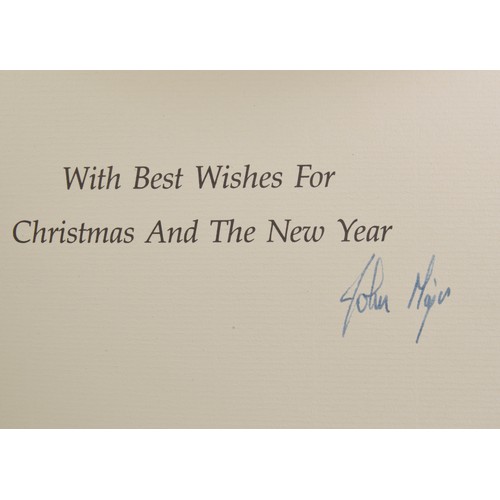 With Best Wishes For
Christmas And The New Year
John Major